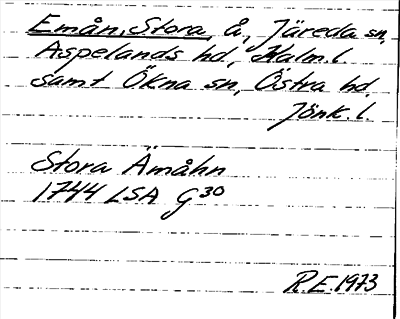 Emån, Stora, å, Järeda sn,
Aspelands hd, Kalm. l.
samt Ökna sn, Östra hd,
Jönk. l.
Stora Åmåhn
1744 LSA G30
R.E. 1973